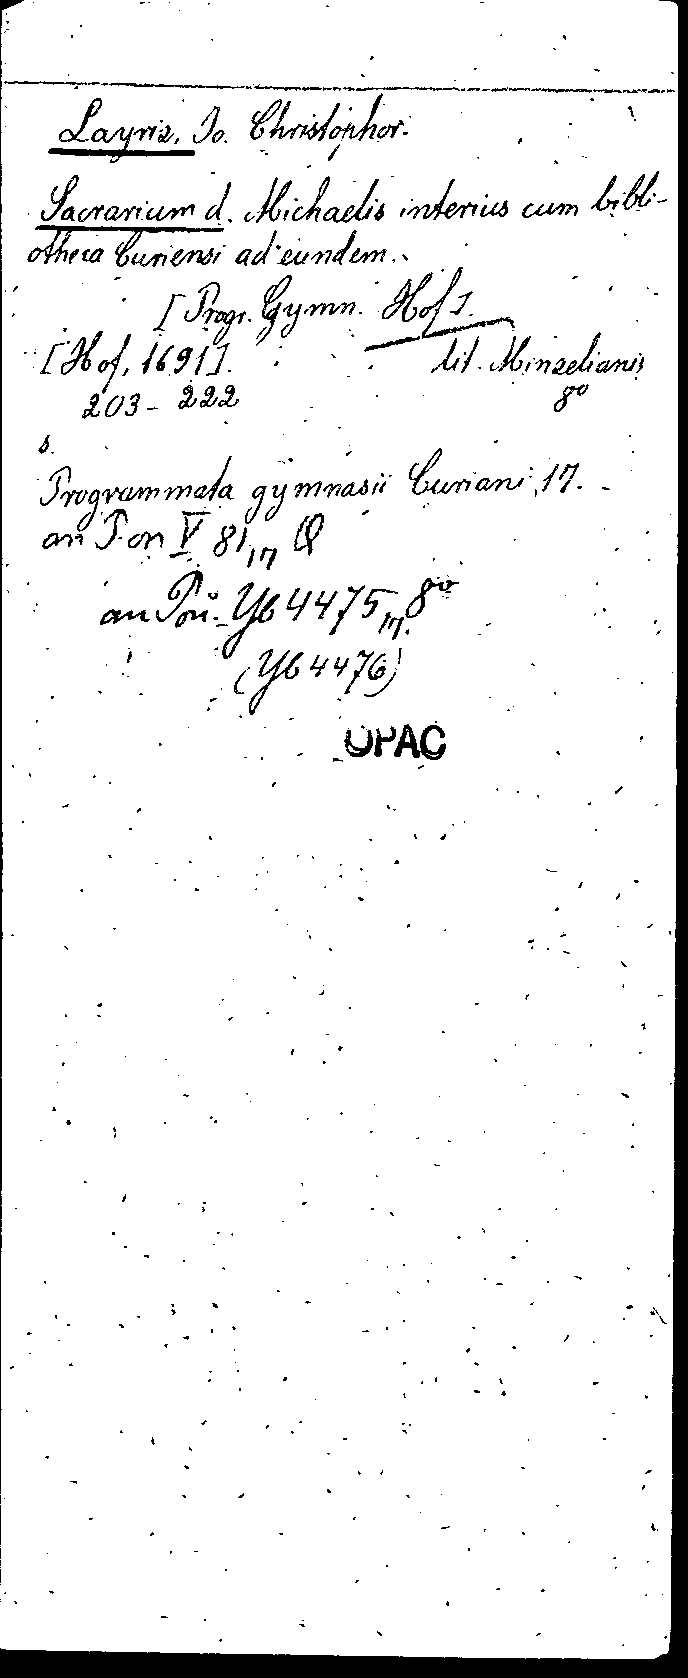 Layriz, Jo. Christophor.
Sacrarium d. Michaelis interius cum bibli-
otheca Curiensi ad eundem.
[Progr. Gymn. Hof].
[Hof, 1691]. lit. Minzelianis
203-222 8°
s.
Programmata gymnasii Curiani, 17.
an Pon V 81,17 Q
an Pon. Yb 4475,17. 8°
(Yb 4476)
OPAC